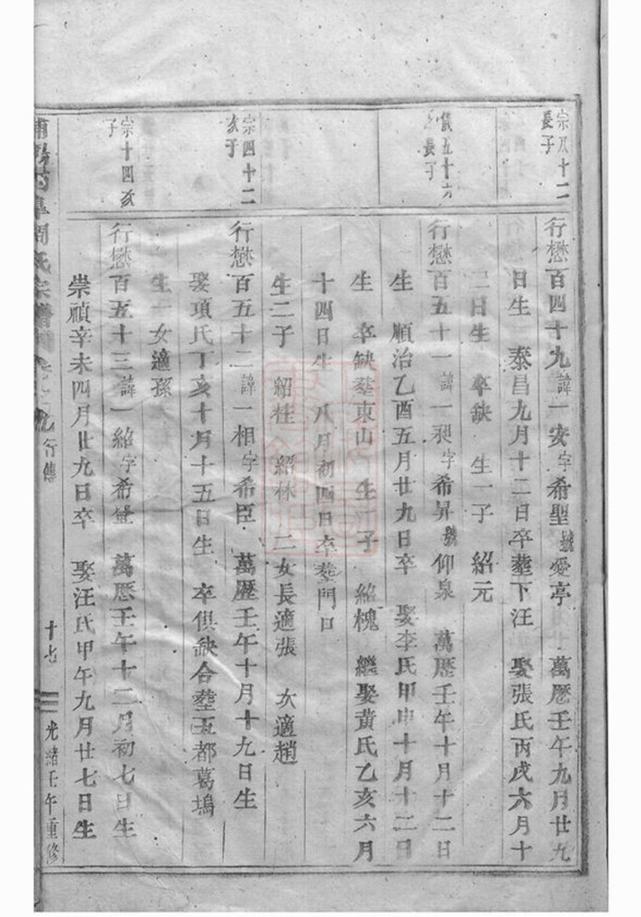 宗八十二
長子
行懋百四十九諱一安字希聖號愛亭 萬厯壬午九月廿九
日生 泰昌九月十二日卒塟下汪 娶張氏丙戌六月十
二日生 卒缺 生一子 紹元
儀五十六
長子
行懋百五十一諱一昶字希昇號仰泉 萬厯壬午十月十二日
生 順治乙酉五月廿九日卒 娶李氏甲申十月十二日
生 卒缺塟東山 生一子 紹槐 繼娶黃氏乙亥六月
十四日生 八月初四日卒塟門口
生二子 紹桂 紹林 二女長適張 次適趙
宗四十二
次子
行懋百五十二諱一相字希臣 萬厯壬午十月十九日生
娶項氏丁亥十月十五日生 卒俱缺合塟五都葛塢
生一女適孫
宗十四次
子
行懋百五十三諱一紹字希 萬厯壬午十二月初七日生
崇禎辛未四月廿九日卒 娶汪氏甲午九月廿七日生
周氏宗譜 行傳 十七 光緒壬午重修